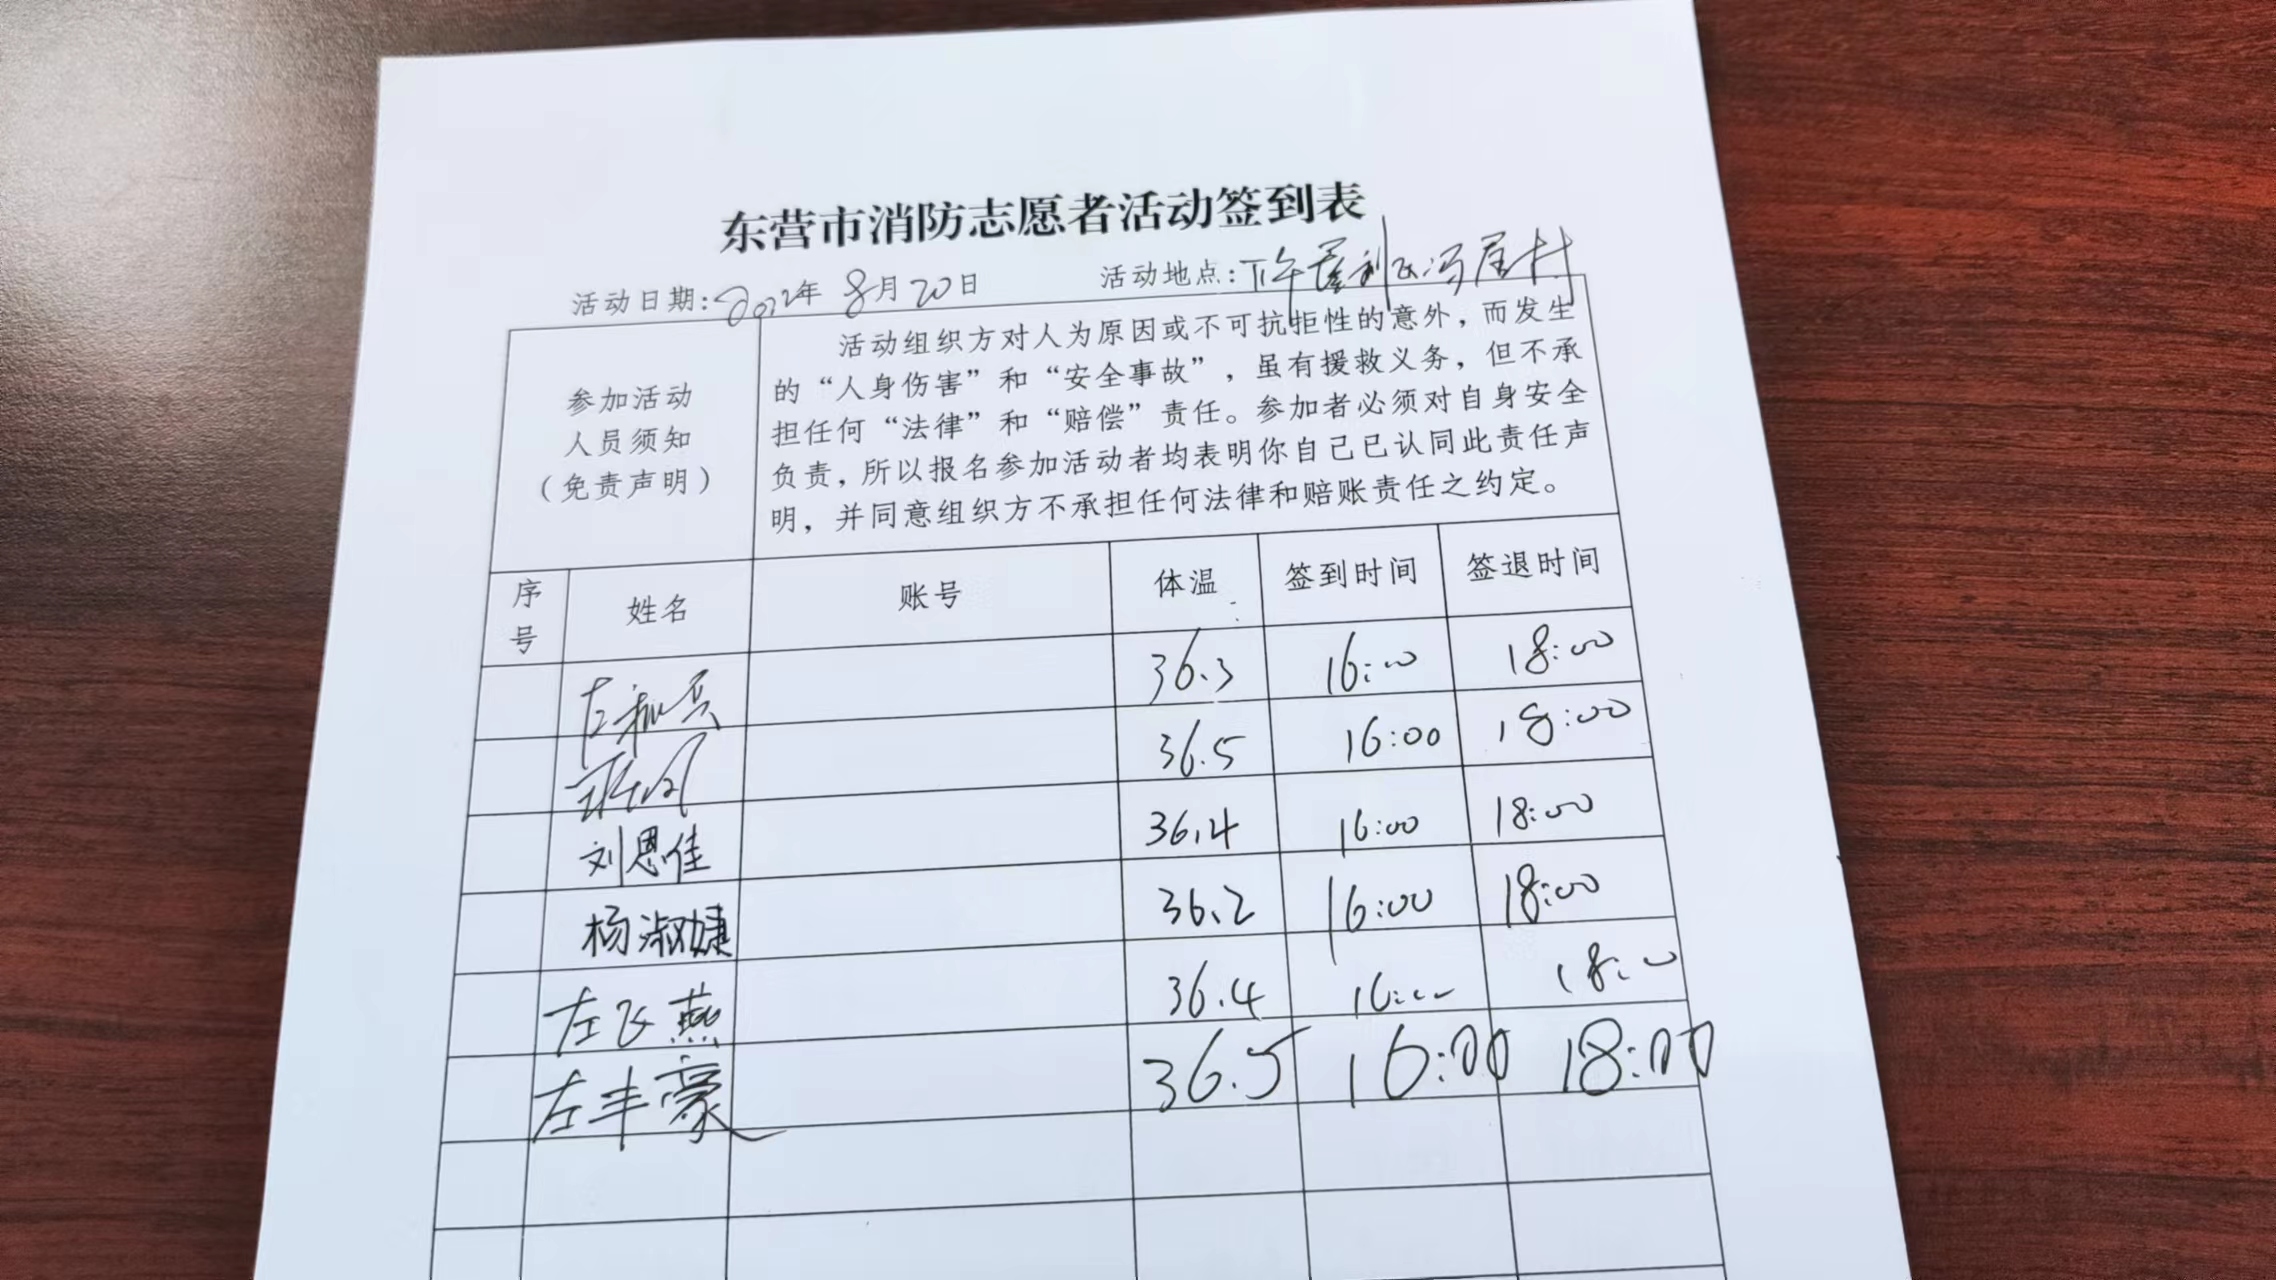 东营市消防志愿者活动签到表
活动日期:2022年 8月20日 活动地点:下午垦利区冯屋村
参加活动
人员须知
（免责声明）
活动组织方对人为原因或不可抗拒性的意外，而发生
的“人身伤害”和“安全事故”，虽有援救义务，但不承
担任何“法律”和“赔偿”责任。参加者必须对自身安全
负责，所以报名参加活动者均表明你自己已认同此责任声
明，并同意组织方不承担任何法律和赔账责任之约定。
序号 姓名 账号 体温 签到时间 签退时间
36.3 16:00 18:00
36.5 16:00 18:00
刘恩佳 36.4 16:00 18:00
杨淑婕 36.2 16:00 18:00
左飞燕 36.4 16:00 18:00
左丰豪 36.5 16:00 18:00